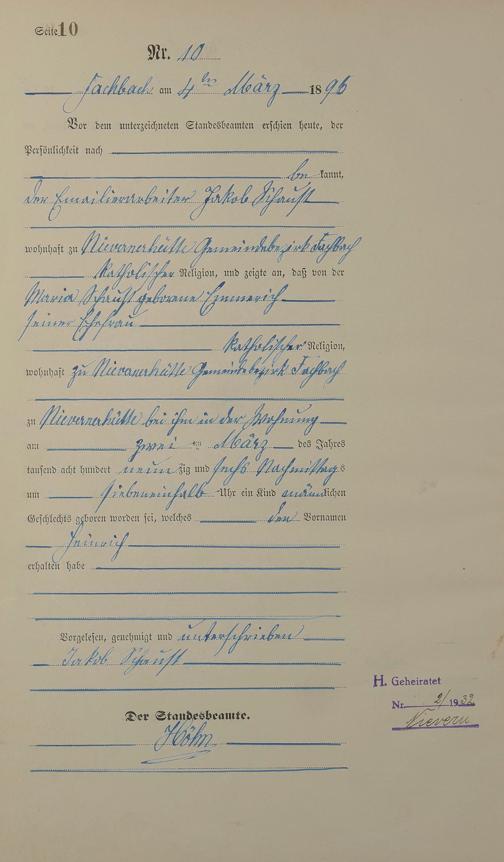 Seite 10
Nr. 10
Fachbach am 4ten März 1896
Vor dem unterzeichneten Standesbeamten erschien heute, der
Persönlichkeit nach
be kannt,
der Emaillierarbeiter Jakob Schaust
wohnhaft zu Nievernerhütte Gemeindebezirk Fachbach
katholischer Religion, und zeigte an, daß von der
Maria Schaust geborene Emmerich
seiner Ehefrau
katholischer Religion,
wohnhaft zu Nievernerhütte Gemeindebezirk Fachbach
zu Nievernerhütte bei ihm in der Wohnung
am zwei ten März des Jahres
tausend acht hundert neun zig und sechs Nachmittags
um siebeneinhalb Uhr ein Kind männlichen
Geschlechts geboren worden sei, welches den Vornamen
Heinrich
erhalten habe
Vorgelesen, genehmigt und unterschrieben
Jakob Schaust
Der Standesbeamte.
Höhn
H. Geheiratet
Nr. 2/1932
Nievern